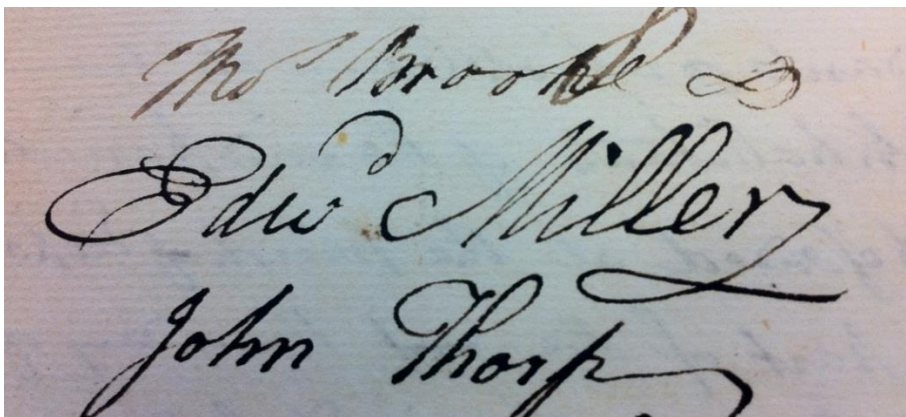 Thos Brooke
Edwd Miller
John Thorp